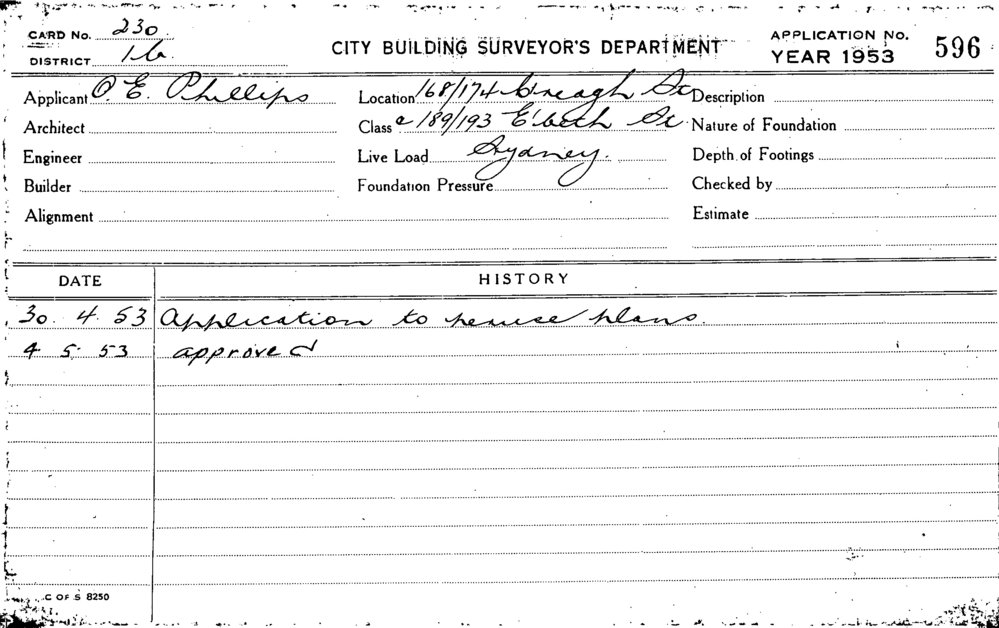 CARD No. 230
DISTRICT 16.
CITY BUILDING SURVEYOR'S DEPARTMENT
APPLICATION No. 596
YEAR 1953
Applicant O. E. Phillips
Location 168/174 C'reagh St
Description
Architect
Class & 189/193 E'beth St
Nature of Foundation
Engineer
Live Load Sydney.
Depth of Footings
Builder
Foundation Pressure
Checked by
Alignment
Estimate
DATE HISTORY
30. 4. 53 Application to peruse plans.
4 5. 53 approved
C OF S 8250